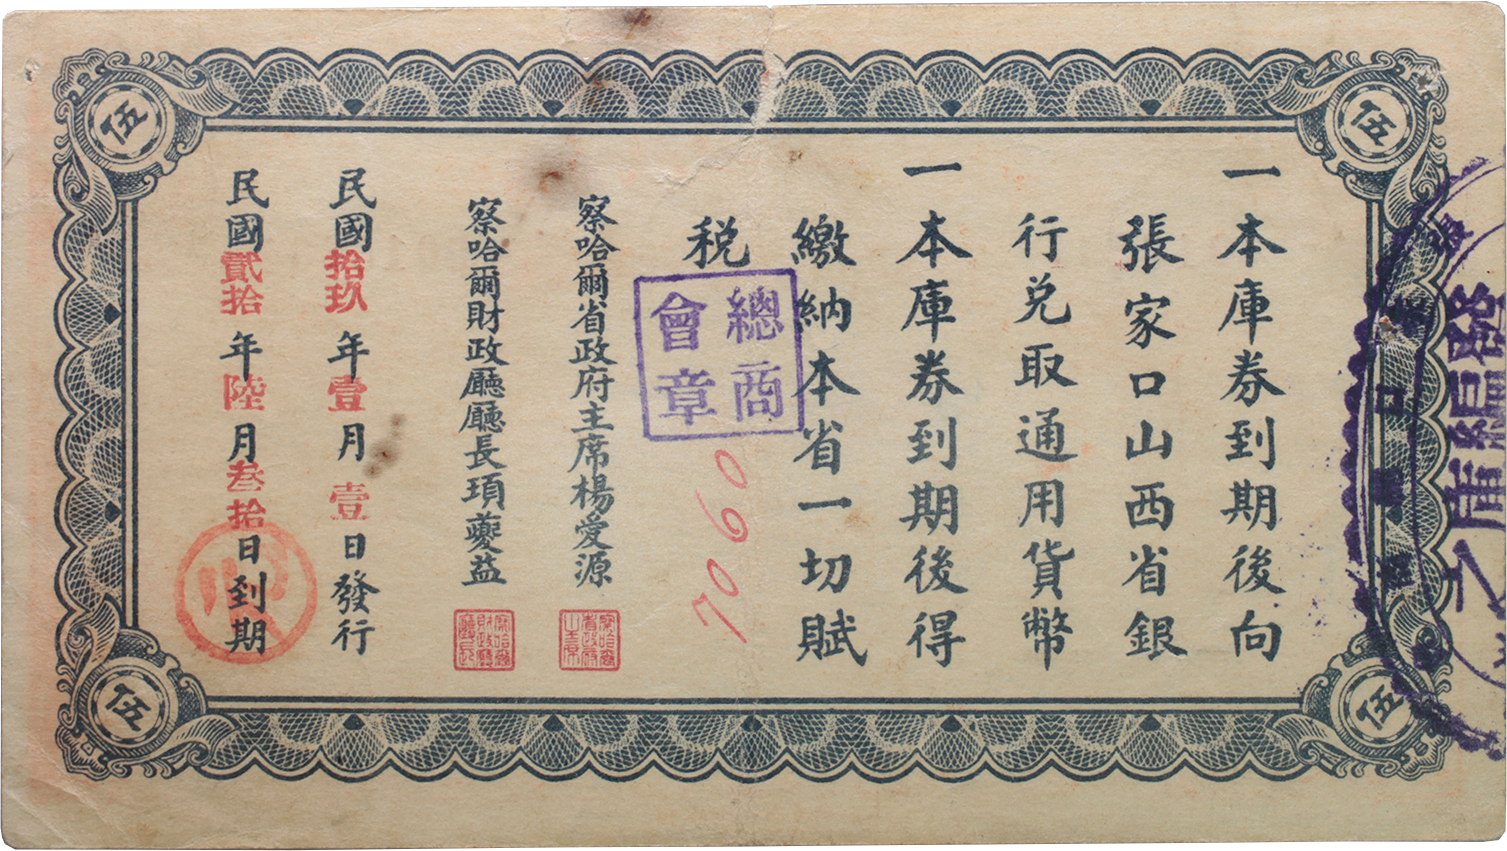 一本庫券到期後向
張家口山西省銀
行兌取通用貨幣
一本庫券到期後得
繳納本省一切賦
税
察哈爾省政府主席楊愛源
察哈爾財政廳廳長項夔益
民國拾玖年壹月壹日發行
民國貳拾年陸月叁拾日到期
伍
伍
伍
伍
總商
會章
7060